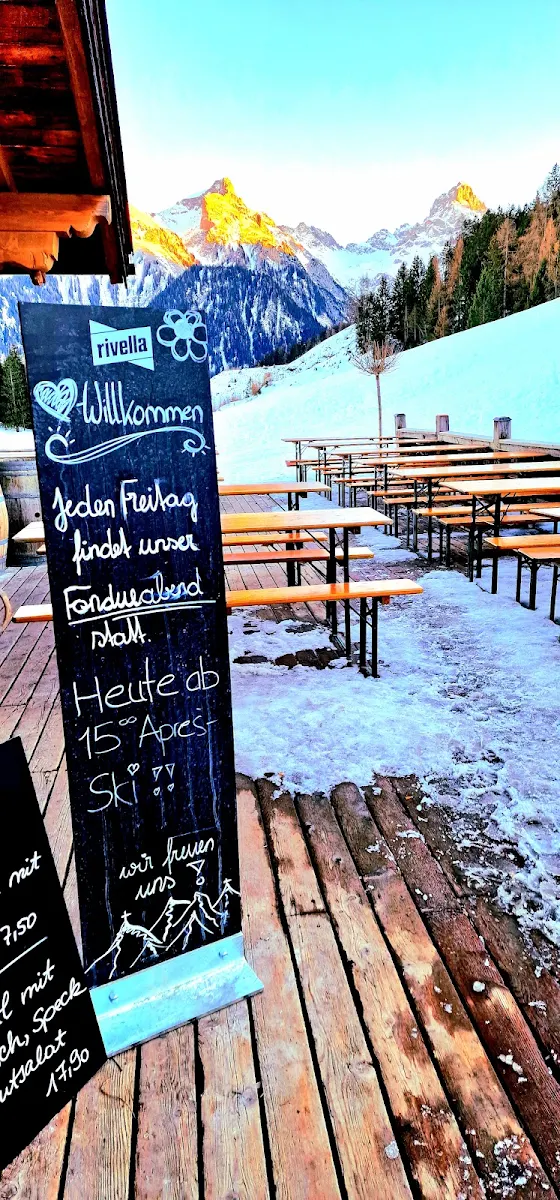 rivella
Willkommen
Jeden Freitag
findet unser
Fondueabend
statt.
Heute ab
15⁰⁰ Apres-
Ski !!
wir freuen
uns !
mit
7,50
mit
Speck
17,90